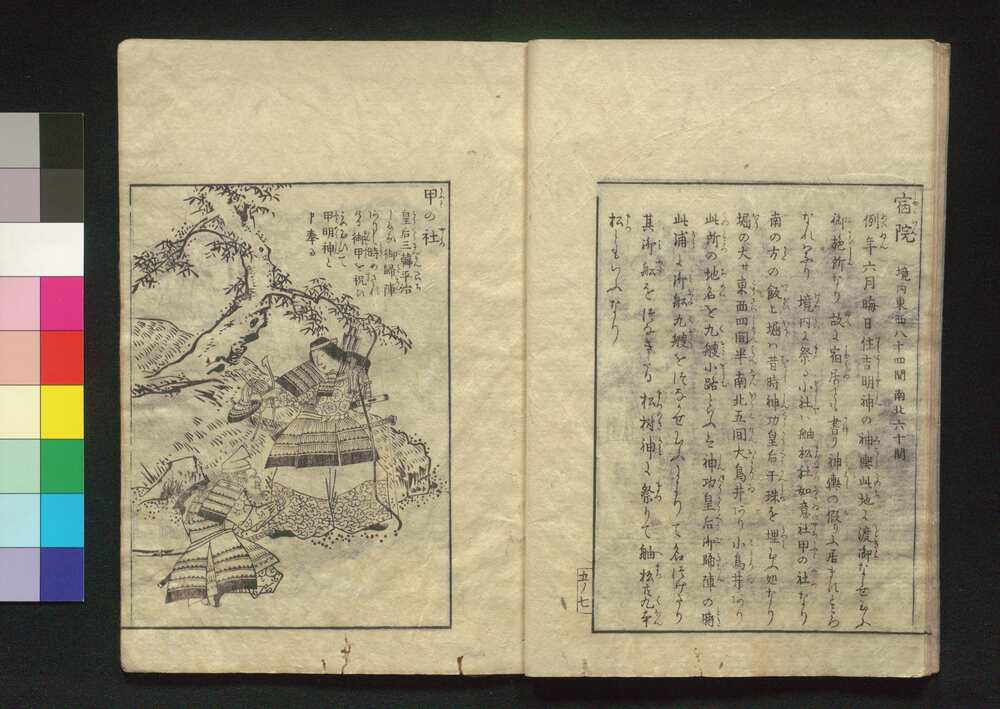 宿院 境内東西八十四間南北六十間
例年六月晦日住吉明神の神輿此地に渡御なせ給ふ
御旅所なり故に宿居とも書り神輿の假りに居ますところ
なれバなり 境内に祭る小社ハ舳松社如意社甲の社なり
南の方の飯匕堀ハ昔時神功皇后干珠を埋給ふ処なり
堀の大サ東西四間半南北五間大鳥井あり小鳥井あり
此所の地名を九艘小路といふを神功皇后御歸陣の時
此浦に御舩九艘をつなぎ給ふよりして名づけたり
其御舩をつなぎたる松樹神に祭りて舳松
松ともいふなり
五ノ七
甲の社
皇后三韓平治
御歸陣
時の
御甲を祝ひ
て
甲明神と
奉る